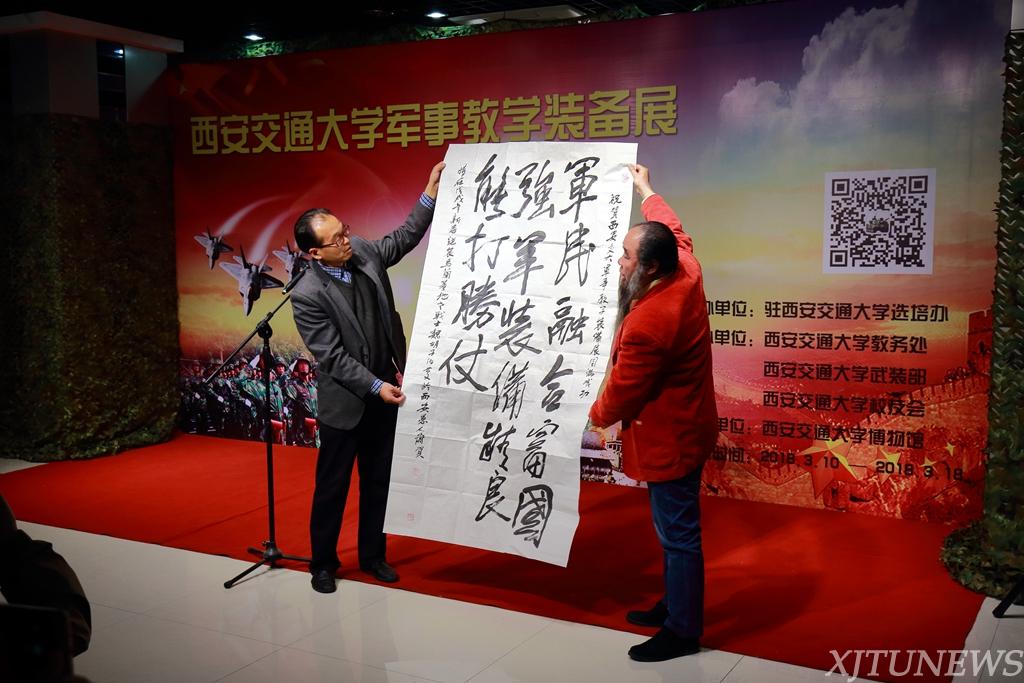 西安交通大学军事教学装备展
軍民融合富國
強军装備精良
能打勝仗
办单位：驻西安交通大学选培办
单位：西安交通大学教务处
西安交通大学武装部
西安交通大学校友会
单位：西安交通大学博物馆
时间：2018.3.10 — 2018.3.18
XJTUNEWS